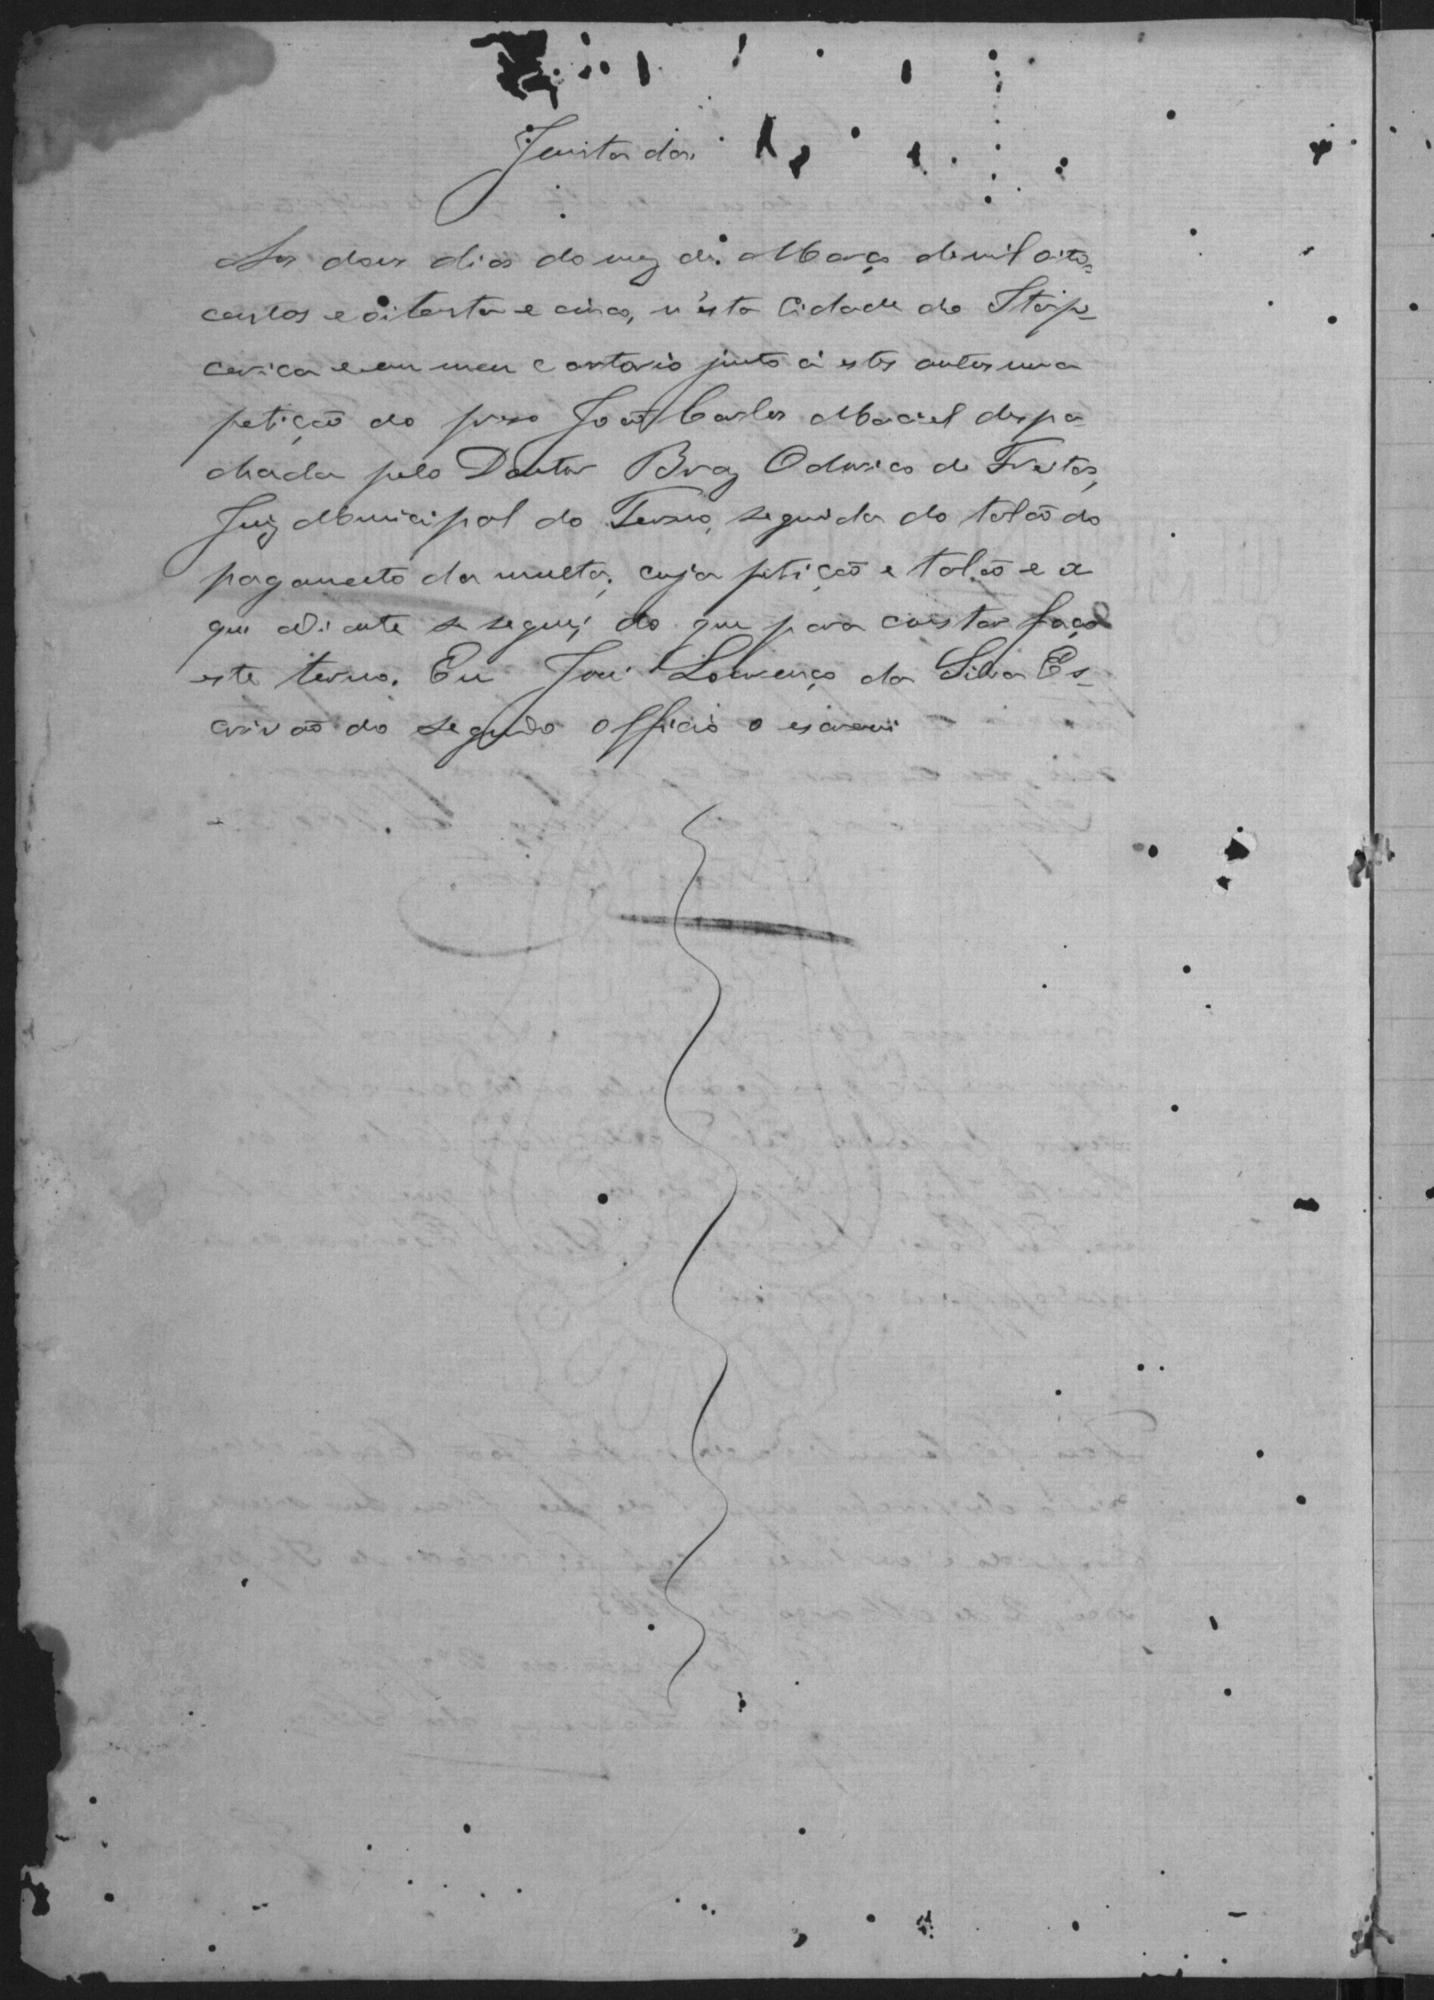 Juntada.
Aos dois dias do mez de Março de mil oito=
centos e oitenta e cinco, n'esta Cidade de Itape
cerica e em meu cartorio junto á estes autos uma
petição do preso João Carlos Maciel despa
chada pelo Doutor Braz Odorico de Freitas,
Juiz Municipal do Termo, seguida do talão do
pagamento da multa; cuja petição e talão é a
que adiante se segue; do que para constar faço
este termo. Eu José Lourenço da Silva Es-
crivão do segundo officio o escrevi